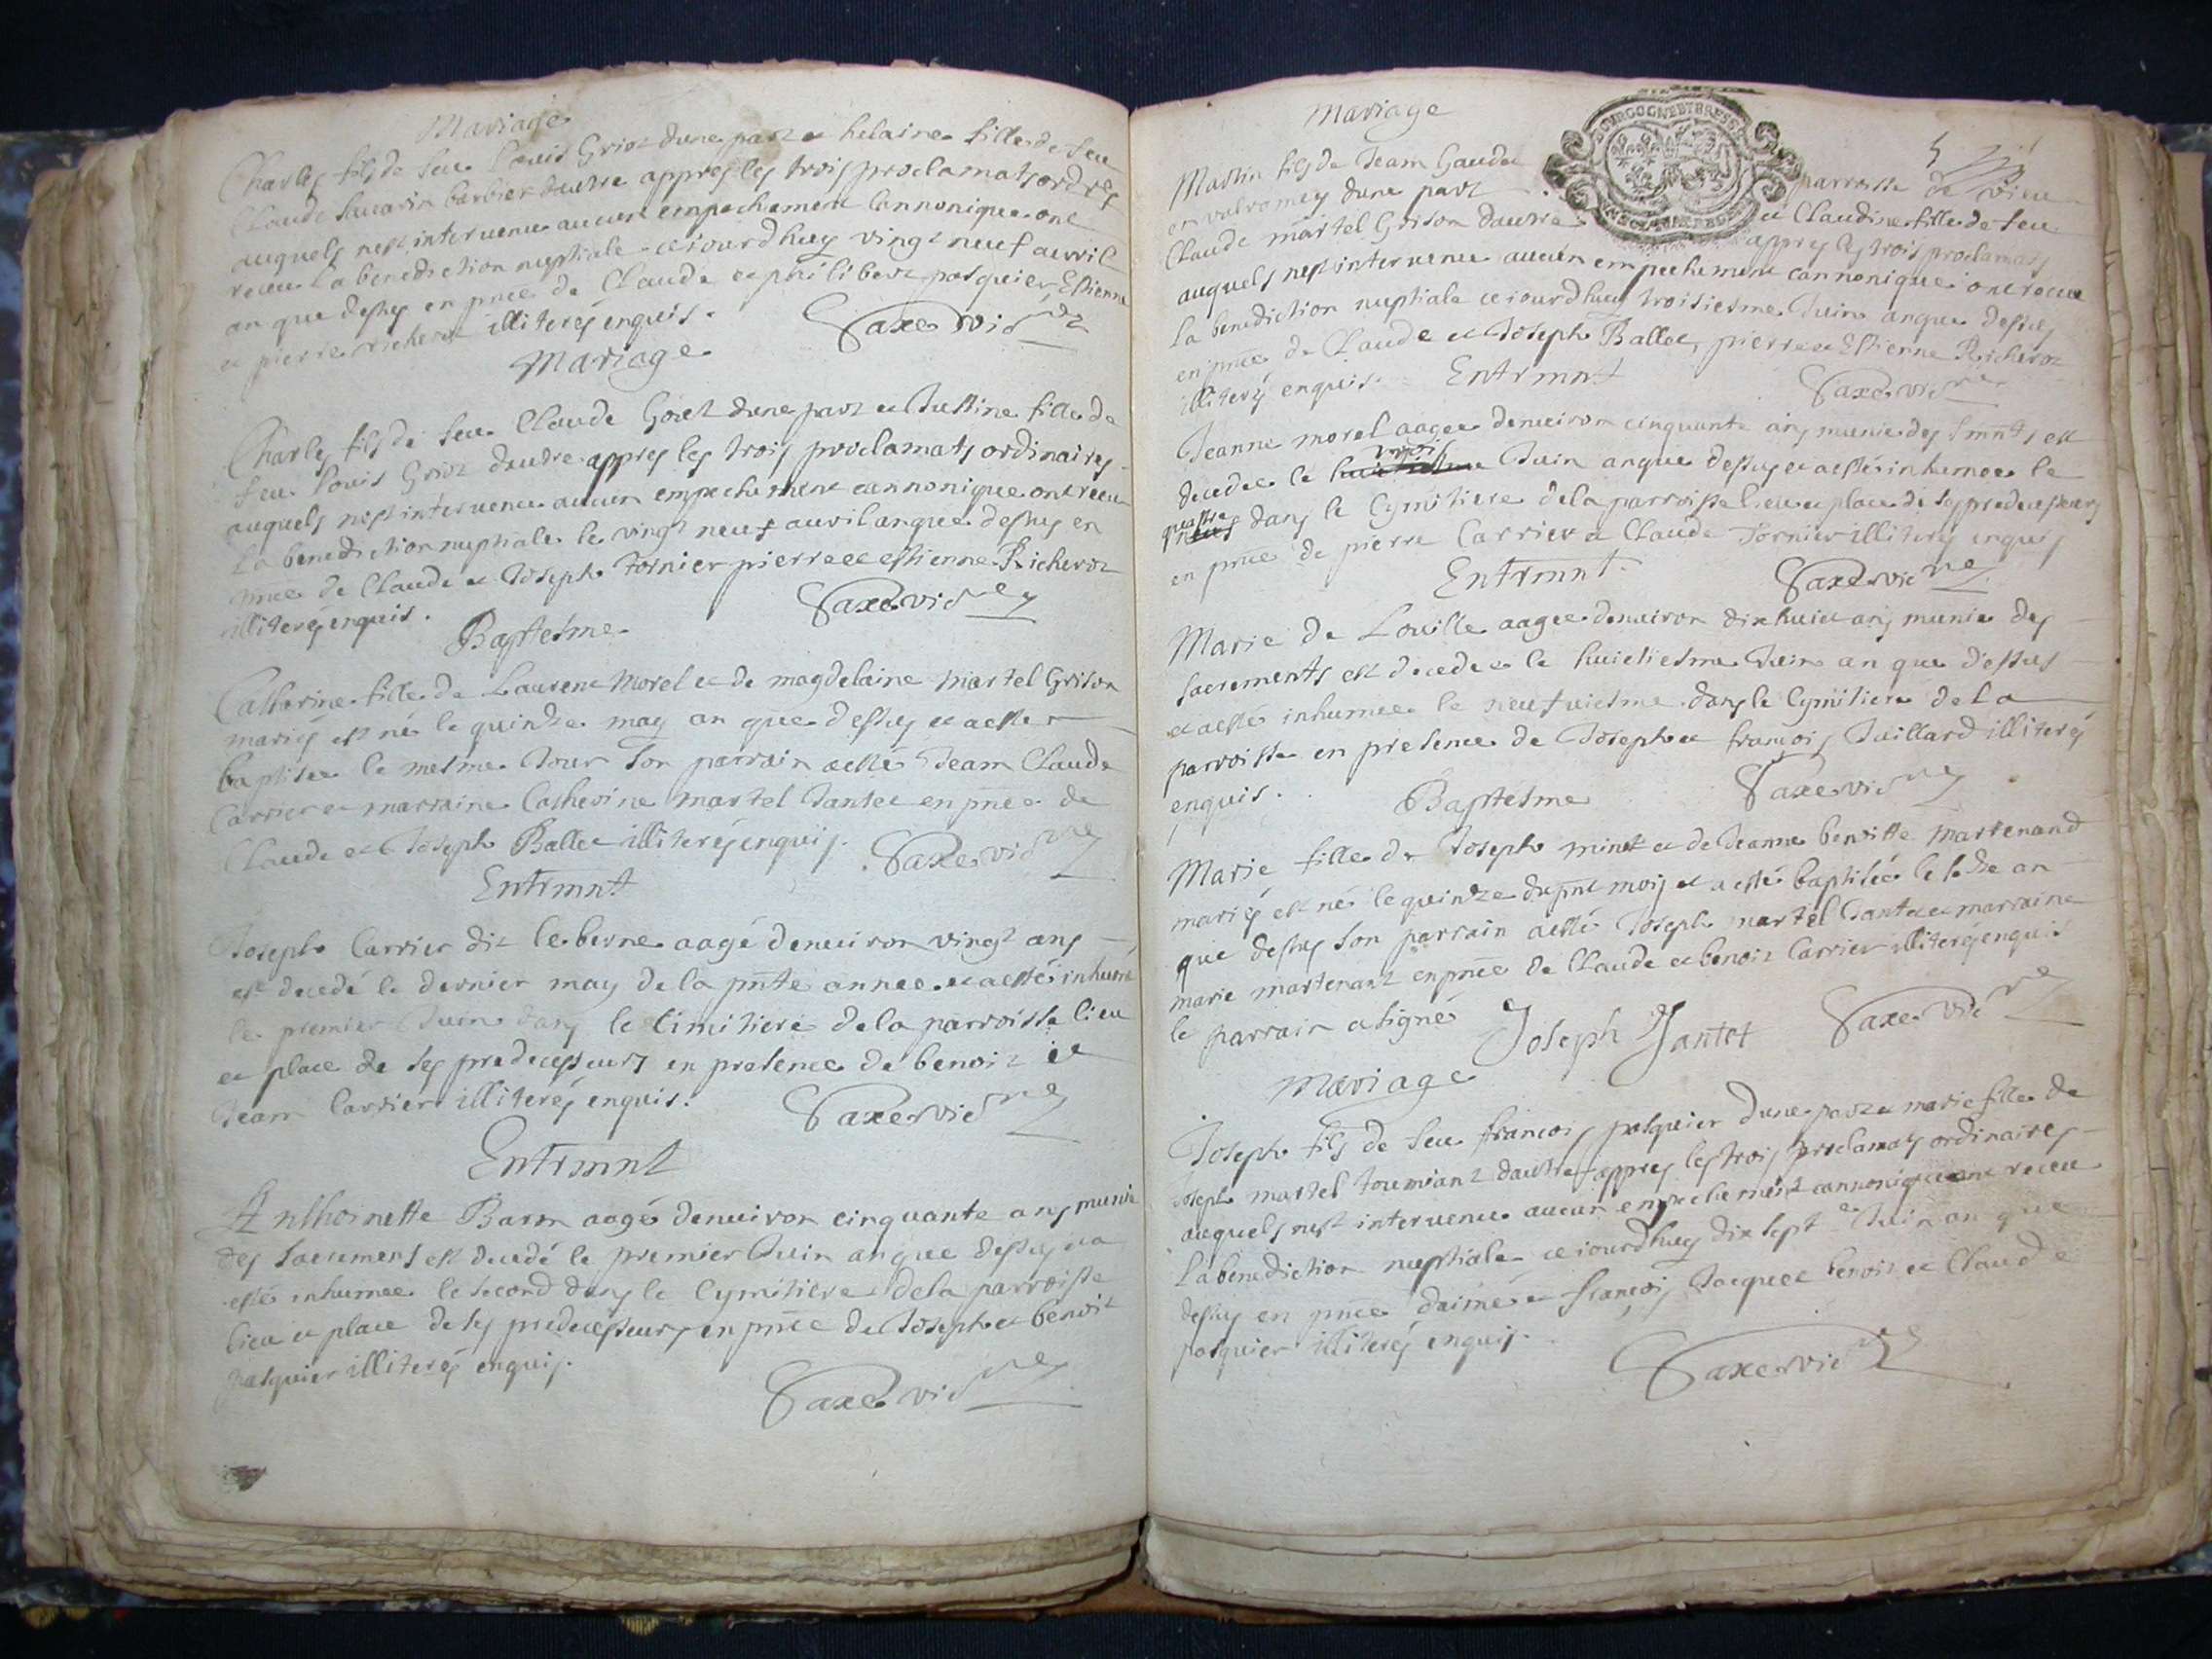 Mariage
Charles fils de feu Louis Griot dune part et helaine fille de feu
Claude Sauarin barbier dautre appres les trois proclamats ordres
auquels nest interuenu aucun empechement Cannonique ont
receu La benediction nuptiale ce iourdhuy vingt neuf auvril
an que dessus en pnce de Claude et philibert pasquier, Estienne
et pierre richerot illiterés enquis.
Saxe vic re
Mariage
Charles fils de feu Claude Goret dune part et Justine fille de
feu Louis Griot dautre appres les trois proclamats ordinaires
auquels nest interuenu aucun empechement cannonique ont receu
La benediction nuptiale le vingt neuf auvril anque dessus en
pnce de Claude et Joseph Fornier pierre et estienne Richerot
illiterés enquis.
Saxe vic re
Baptesme
Catherine fille de Laurent Morel et de magdelaine martel Grison
mariés est né le quindze may an que dessus et a esté
baptisée le mesme Jour Son parrain a esté Jean Claude
Carrier et marraine Catherine martel Jantet en pnce de
Claude et Joseph Ballet illiterés enquis.
Saxe vic re
Entrmnt
Joseph Carrier dit le berne aagé denuiron vingt ans
est decedé le dernier may de la pnte annee et a esté inhumé
le premier Juin dans le Cimitiere de la parroisse lieu
et place de ses predecesseurs en presence de benoit et
Jean Carrier illiterés enquis.
Saxe vic re
Entrmnt
Anthoinette Barm aagé denuiron cinquante ans munie
des sacremens est decedé le premier Juin anque dessus et a
esté inhumee le second dans le Cymitiere de la parroisse
lieu et place de ses predecesseurs en pnce de Joseph et benoit
pasquier illiterés enquis.
Saxe vic re
Mariage
BOURGOGNE ET BRESSE
5
Martin fils de Jean Gaudet parroisse de vieu
en valromey dune part et Claudine fille de feu
Claude martel Grison dautre appres les trois proclamats
auquels nest interuenu aucun empechement cannonique ont receu
la benediction nuptiale ce iourdhuy troisiesme Juin anque dessus
en pnce de Claude et Joseph Ballet, pierre et Estienne Richerot
illiterés enquis.
Saxe vic re
Entrmnt
Jeanne morel aagee denuiron cinquante ans munie des Smnts est
decedee le trois Juin anque dessus et a esté inhumee le
quatre dans le Cymitiere de la parroisse lieu et place de ses predecesseurs
en pnce de pierre Carrier et Claude Fornier illiterés enquis
Saxe vic re
Entrmnt
Marie de Louille aagee denuiron dix huict ans munie des
sacrements est decedee le huictiesme Juin an que dessus
et a esté inhumee le neufuiesme dans le Cymitiere de La
parroisse en presence de Joseph et francois Juillard illiterés
enquis.
Saxe vic re
Baptesme
Marie fille de Joseph minet et de Jeanne benoitte Martenand
mariés est né le quindze du pnt mois et a esté baptisée le sedze an
que dessus son parrain a esté Joseph martel Jantet et marraine
marie martenant en pnce de Claude et benoit Carrier illiterés enquis
le parrain a signé
Joseph Jantet
Saxe vic re
Mariage
Joseph fils de feu francois pasquier dune part et marie fille de
Joseph martel toumiant dautre appres les trois proclamats ordinaires
auquels nest interuenu aucun empechement cannonique ont receu
La benediction nuptiale ce iourdhuy dix sept e Juin an que
dessus en pnce daimé et francois, Jacque et benoit et Claude
pasquier illiterés enquis.
Saxe vic re